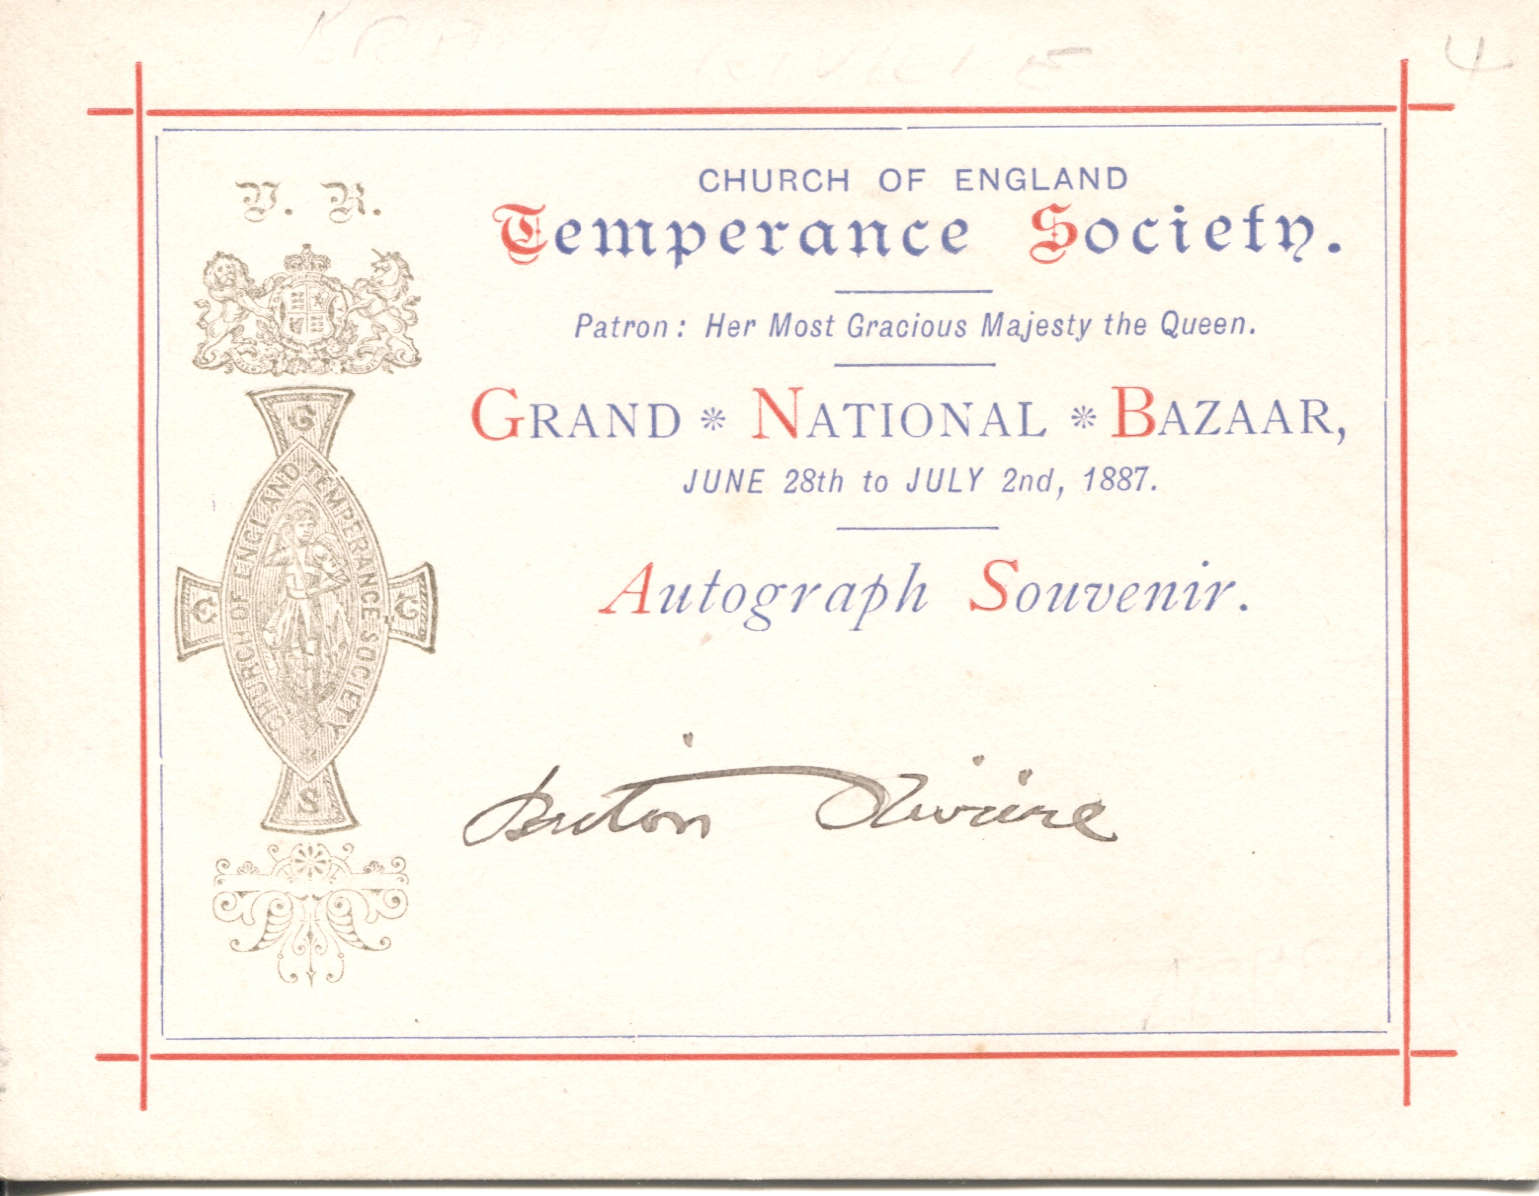 4
V. R.
CHURCH OF ENGLAND
Temperance Society.
Patron: Her Most Gracious Majesty the Queen.
GRAND * NATIONAL * BAZAAR,
JUNE 28th to JULY 2nd, 1887.
Autograph Souvenir.
C
E
T
S
CHURCH OF ENGLAND TEMPERANCE SOCIETY
Briton Riviere